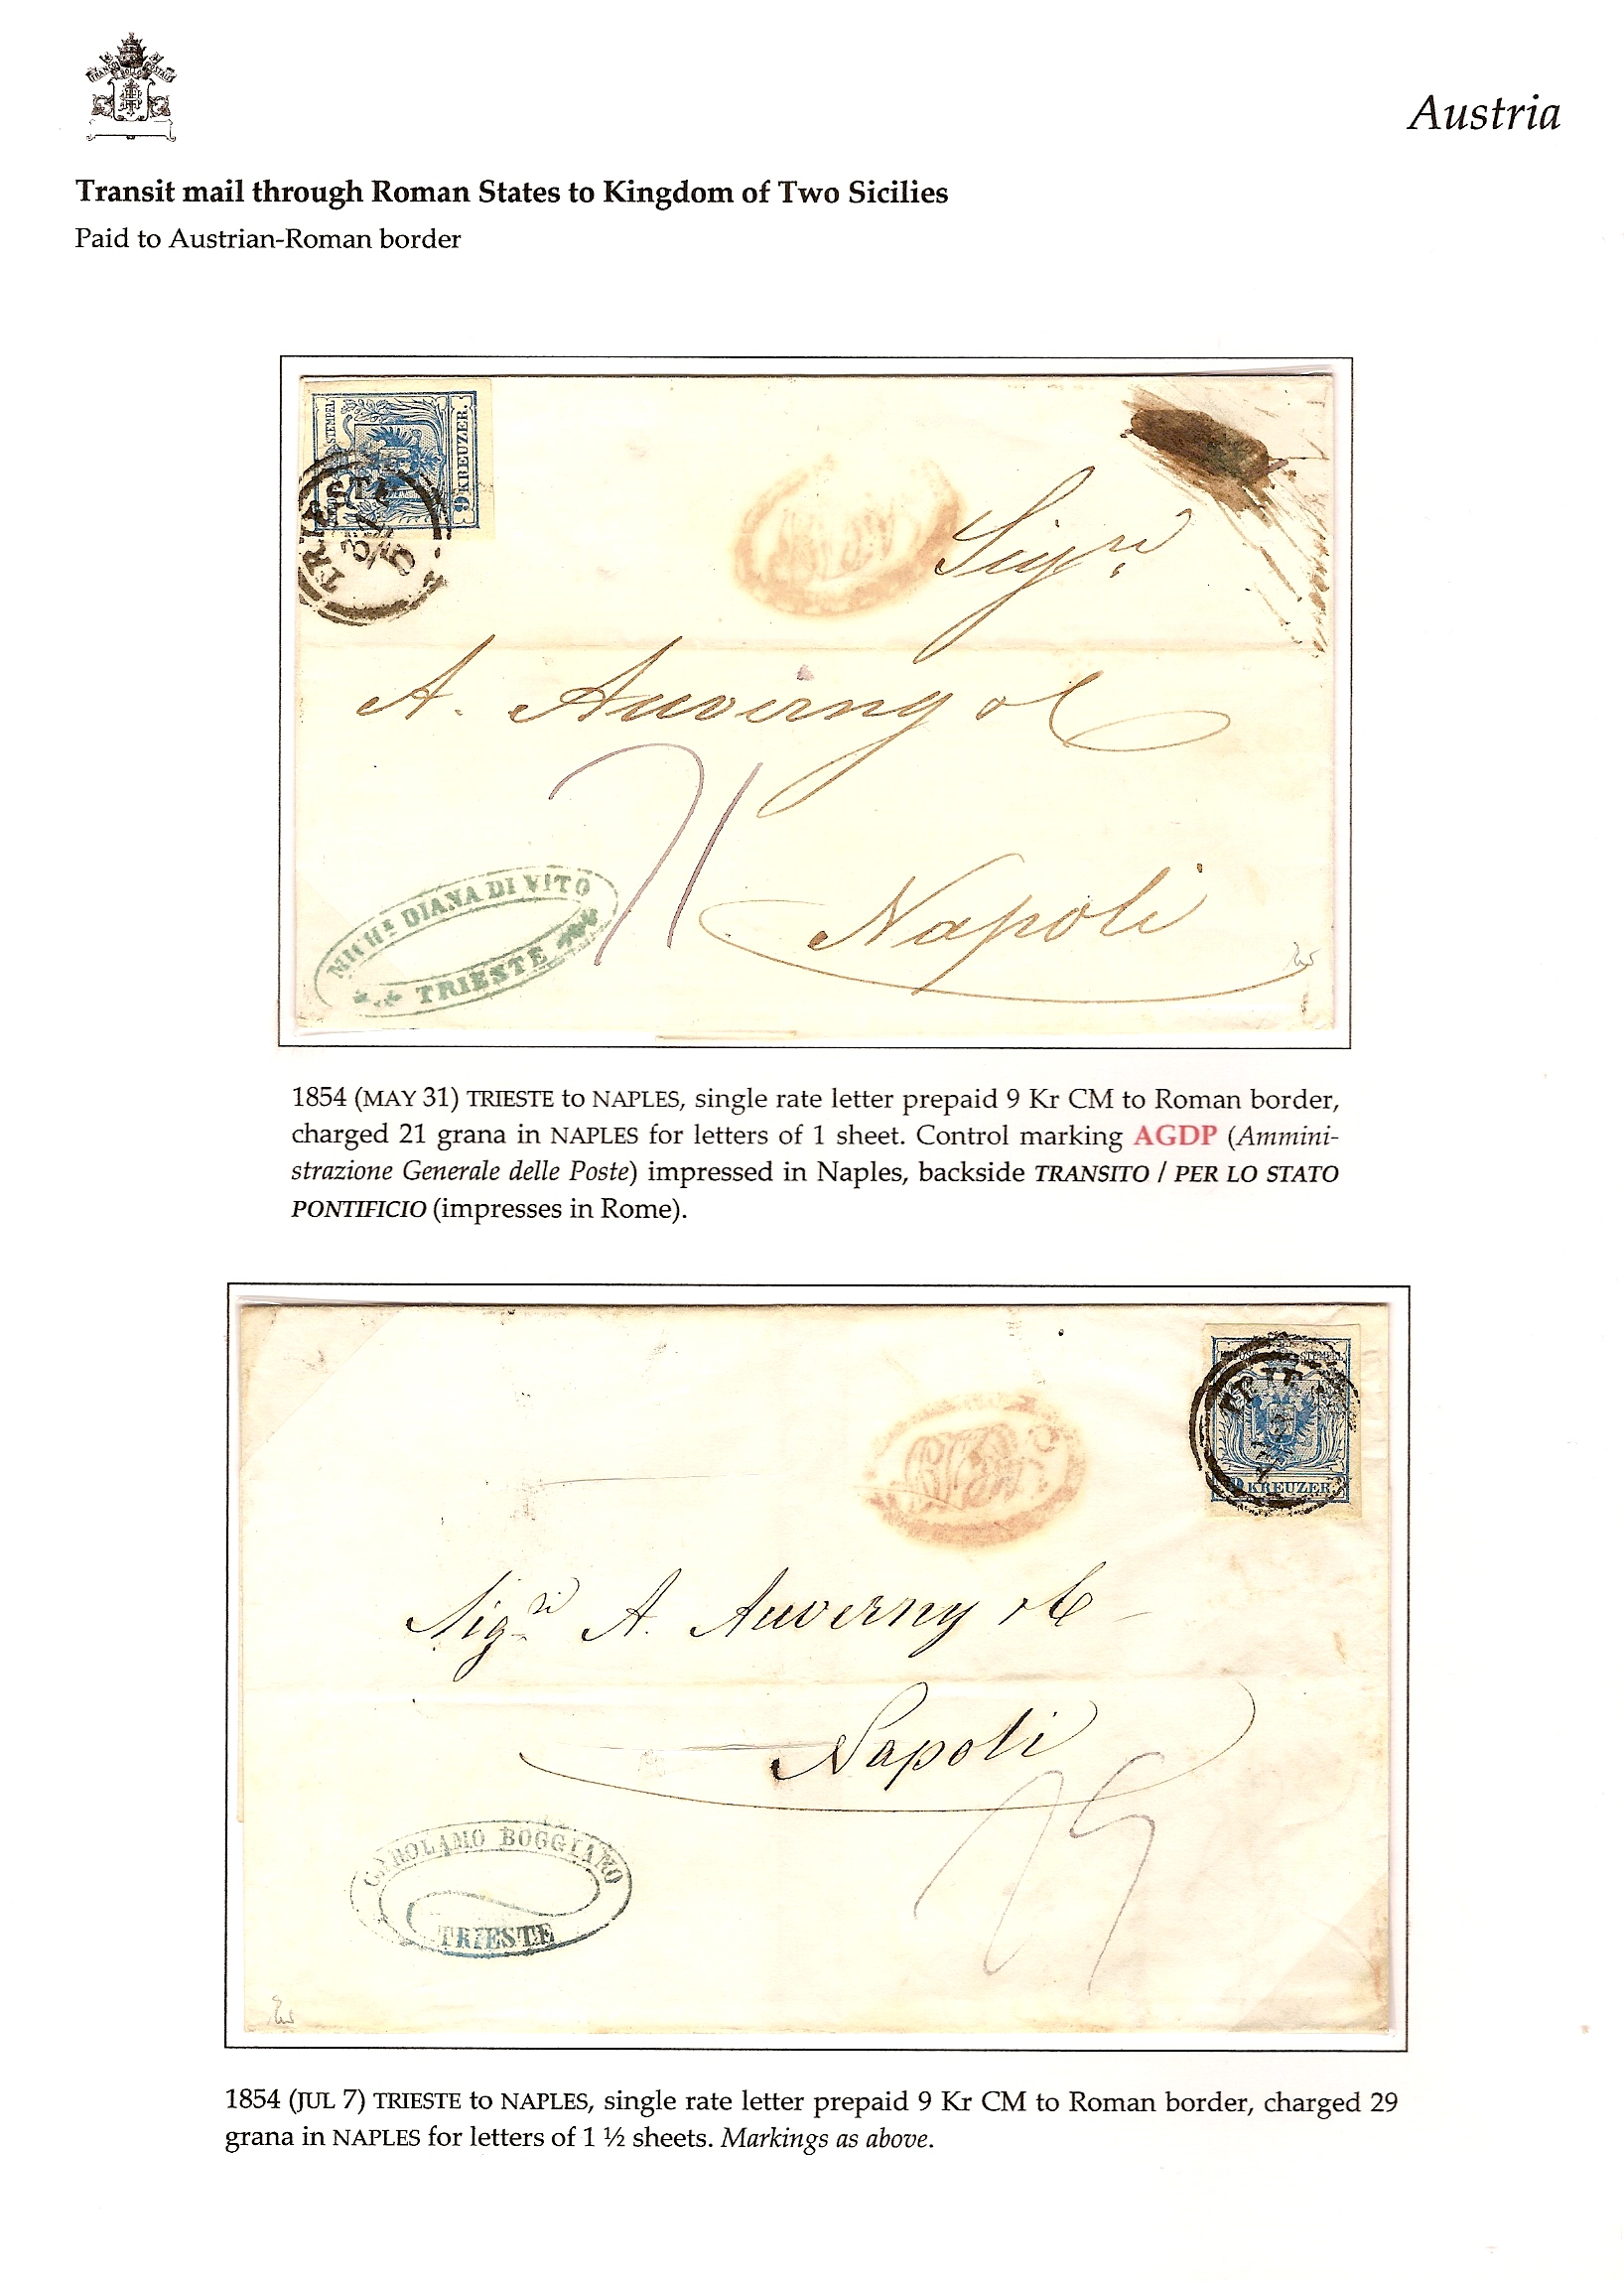 Austria
Transit mail through Roman States to Kingdom of Two Sicilies
Paid to Austrian-Roman border
STEMPEL
9 KREUZER.
TRIEST
31/5
Sigri
A. Auverny & C
21
Napoli
MICHe DIANA DI VITO
TRIESTE
1854 (MAY 31) TRIESTE to NAPLES, single rate letter prepaid 9 Kr CM to Roman border,
charged 21 grana in NAPLES for letters of 1 sheet. Control marking AGDP (Ammini-
strazione Generale delle Poste) impressed in Naples, backside TRANSITO / PER LO STATO
PONTIFICIO (impresses in Rome).
STEMPEL
9 KREUZER.
Sigri A. Auverny & C
Napoli
29
GIROLAMO BOGGIANO
TRIESTE
1854 (JUL 7) TRIESTE to NAPLES, single rate letter prepaid 9 Kr CM to Roman border, charged 29
grana in NAPLES for letters of 1 ½ sheets. Markings as above.